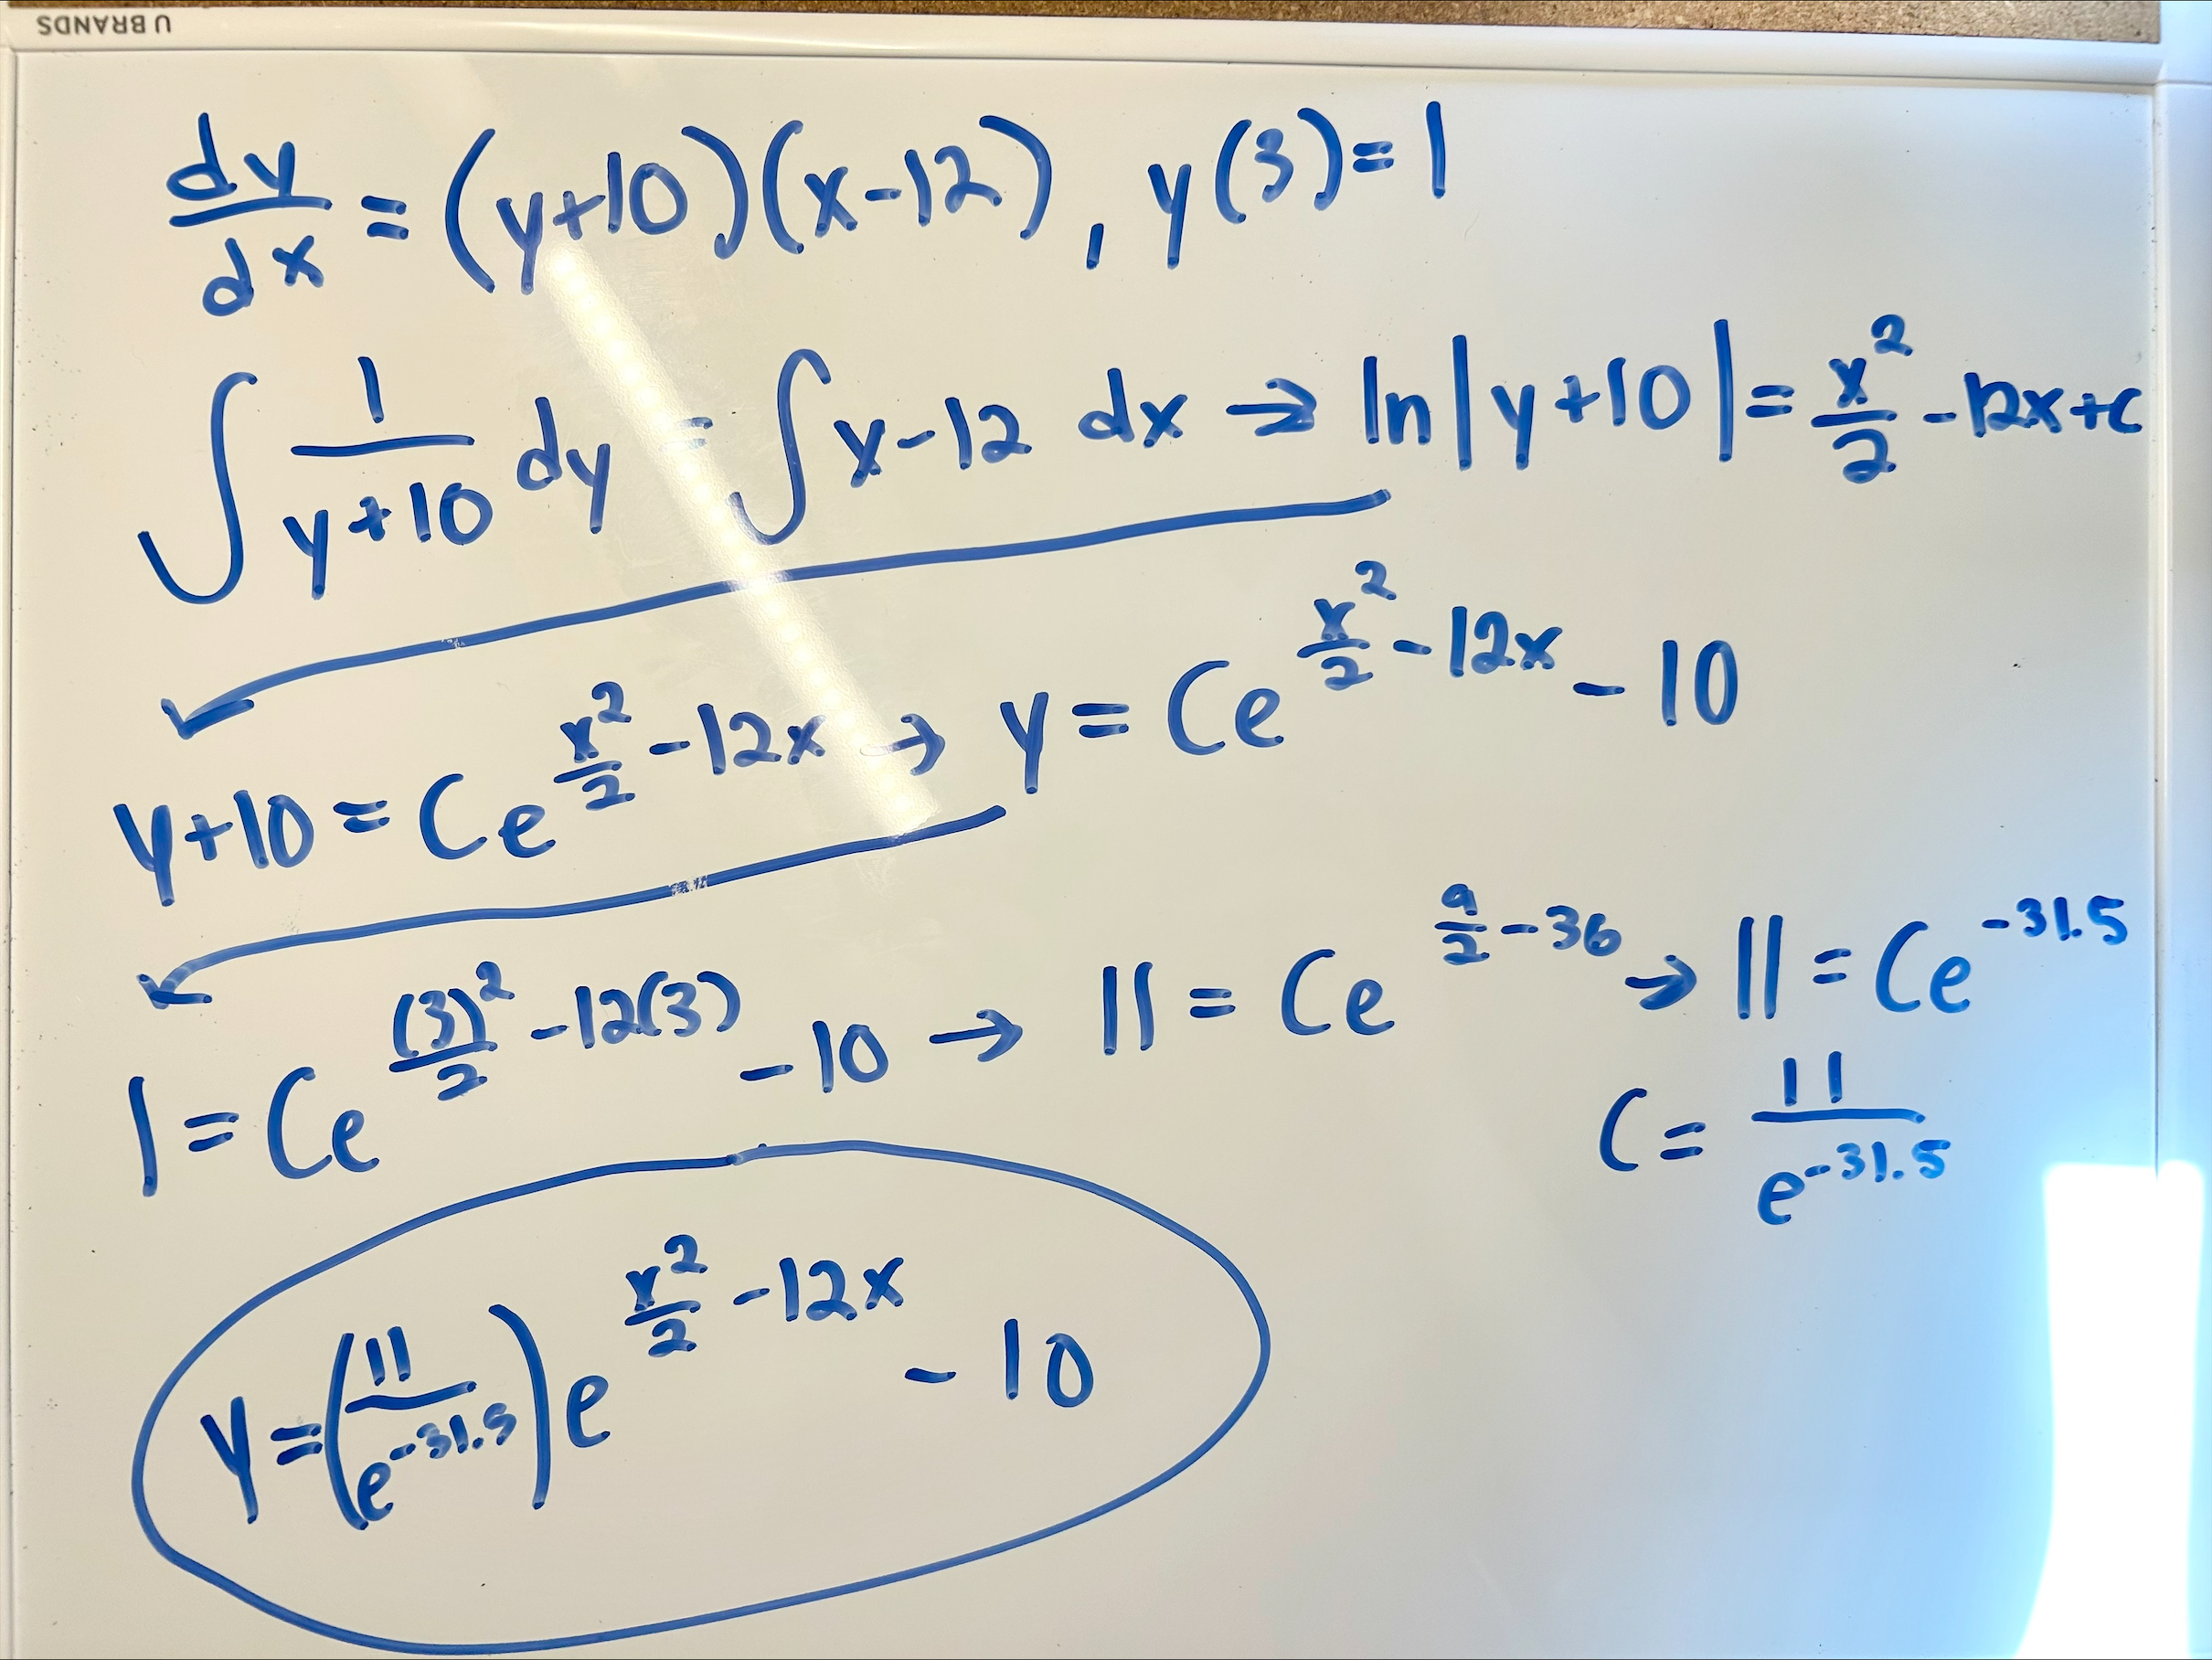 U BRANDS
dy/dx = (y+10)(x-12), y(3)=1
∫ 1/(y+10) dy = ∫ x-12 dx → ln|y+10| = x²/2 -12x+c
y+10 = Ce^(x²/2 -12x) → y = Ce^(x²/2 -12x) - 10
1 = Ce^((3)²/2 -12(3)) - 10 → 11 = Ce^(9/2 -36) → 11 = Ce^(-31.5)
C = 11/e^(-31.5)
y = (11/e^(-31.5)) e^(x²/2 -12x) - 10